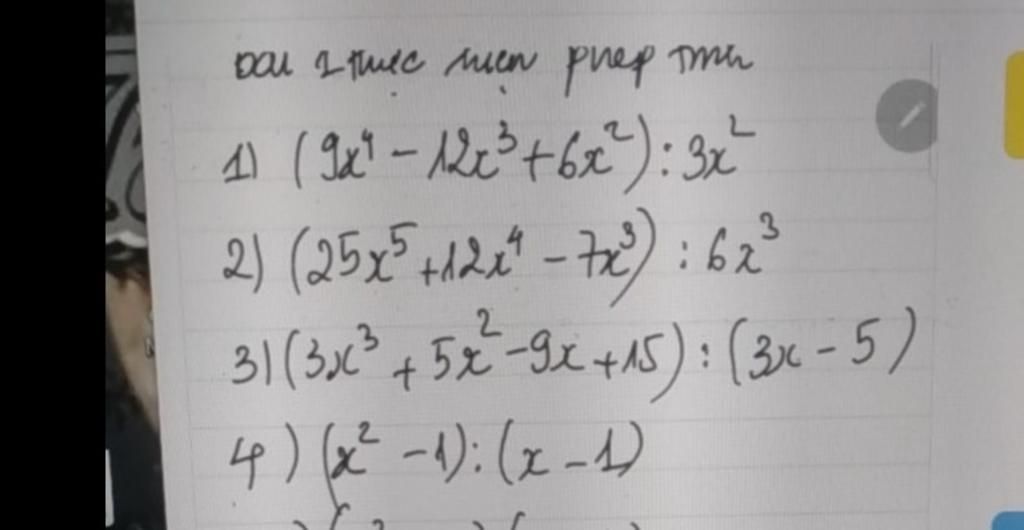 bài 1 thực hiện phép tính
1) (9x⁴ - 12x³ + 6x²) : 3x²
2) (25x⁵ + 12x⁴ - 7x³) : 6x³
3) (3x³ + 5x² - 9x + 15) : (3x - 5)
4) (x² - 1) : (x - 1)